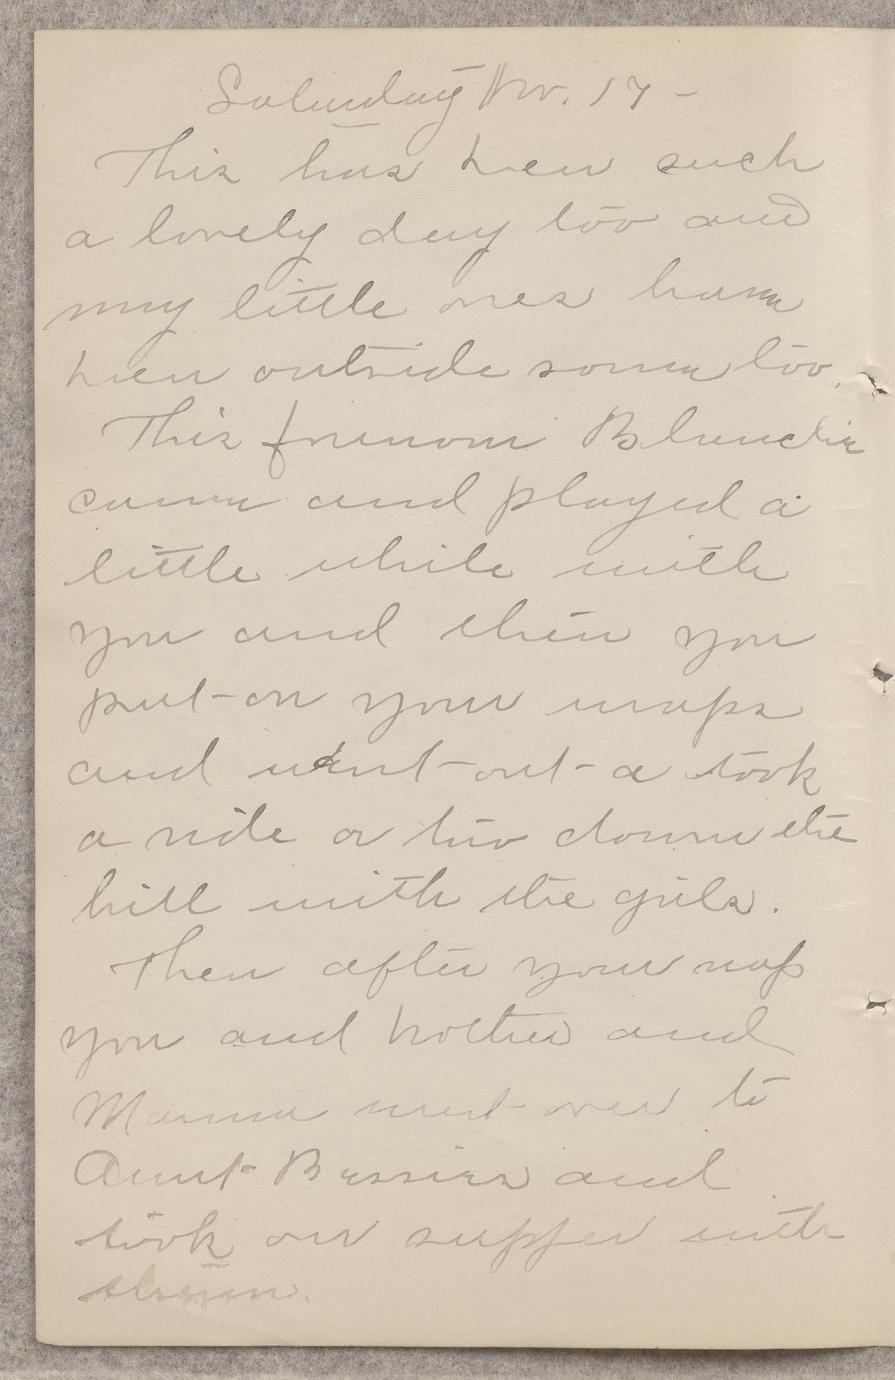 Saturday Nov. 17 -
This has been such
a lovely day too and
my little ones have
been outside some too.
This forenoon Blanche
came and played a
little while with
you and then you
put on your wraps
and went out a took
a ride or two down the
hill with the girls.
Then after your nap
you and brother and
Mama went over to
Aunt Bessies and
took our supper with
them.